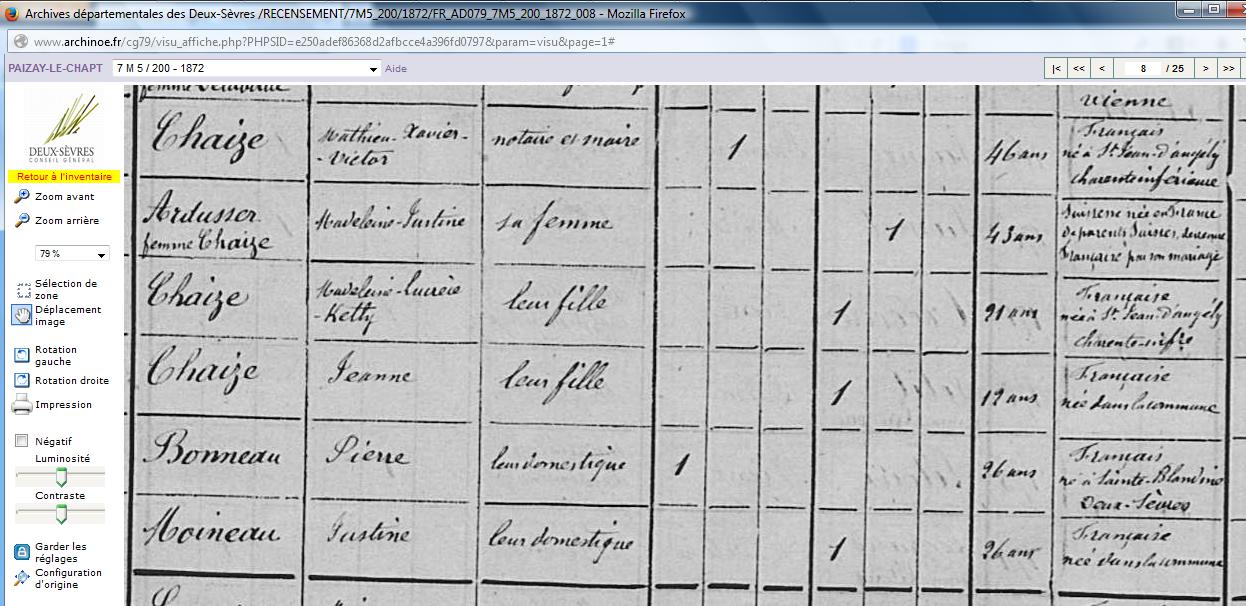 Archives départementales des Deux-Sèvres /RECENSEMENT/7M5_200/1872/FR_AD079_7M5_200_1872_008 - Mozilla Firefox
www.archinoe.fr/cg79/visu_affiche.php?PHPSID=e250adef86368d2afbcce4a396fd0797&param=visu&page=1#
PAIZAY-LE-CHAPT 7 M 5 / 200 - 1872 Aide |< << < 8 / 25 > >>
DEUX-SÈVRES
CONSEIL GÉNÉRAL
Retour à l'inventaire
Zoom avant
Zoom arrière
79 %
Sélection de
zone
Déplacement
image
Rotation
gauche
Rotation droite
Impression
Négatif
Luminosité
Contraste
Garder les
réglages
Configuration
d'origine
vienne
Chaize
Mathieu-Xavier-
-Victor
notaire et maire
1
46 ans
Français
né à St Jean-d'angély
charente inférieure
Ardusser
femme Chaize
Madeleine-Justine
sa femme
1
43 ans
Suissesse née en France
de parents Suisses, devenue
Française par son mariage
Chaize
Madeleine-Lucrèce
-Ketty
leur fille
1
21 ans
Française
née à St Jean-d'angély
charente-infre
Chaize
Jeanne
leur fille
1
12 ans
Française
née dans la commune
Bonneau
Pierre
leur domestique
1
26 ans
Français
né à Sainte-Blandine
Deux-Sèvres
Moineau
Justine
leur domestique
1
26 ans
Française
née dans la commune